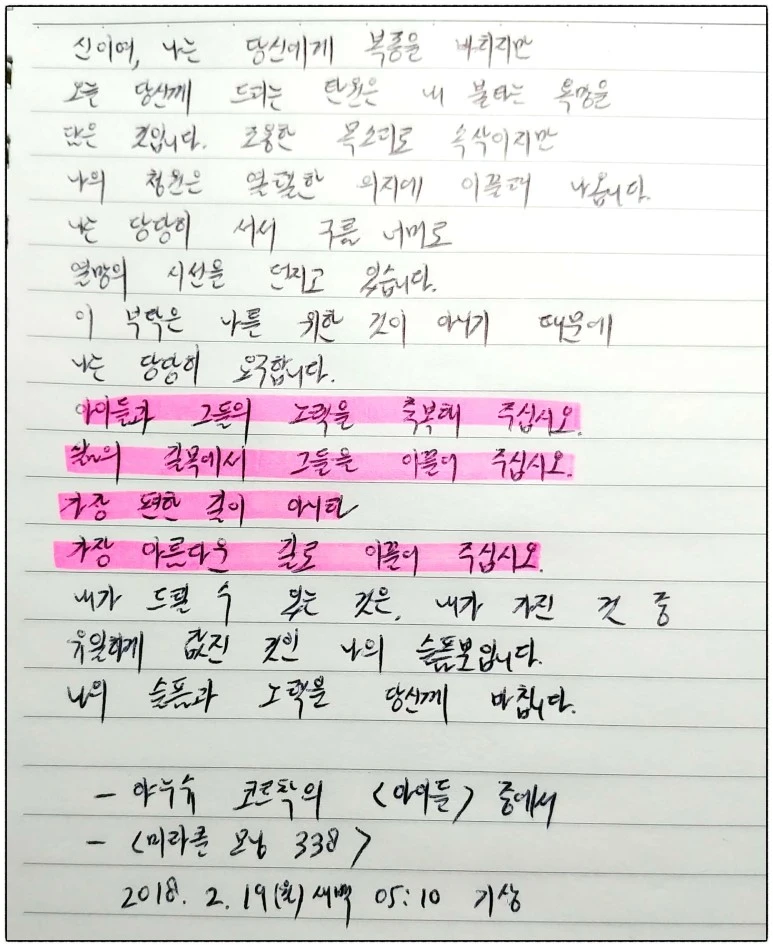 신이여, 나는 당신에게 복종을 바치지만
오늘 당신께 드리는 탄원은 내 불타는 욕망을
담은 것입니다. 조용한 목소리로 속삭이지만
나의 청원은 열렬한 의지에 이끌려 나옵니다.
나는 당당히 서서 구름 너머로
열망의 시선을 던지고 있습니다.
이 부탁은 나를 위한 것이 아니기 때문에
나는 당당히 요구합니다.
아이들과 그들의 노력을 축복해 주십시오.
삶의 길목에서 그들을 이끌어 주십시오.
가장 편한 길이 아니라
가장 아름다운 길로 이끌어 주십시오.
내가 드릴 수 있는 것은, 내가 가진 것 중
유일하게 값진 것인 나의 슬픔뿐입니다.
나의 슬픔과 노력을 당신께 바칩니다.
- 야누슈 코르착의 <아이들> 중에서
- <미라클 모닝 338>
2018. 2. 19(월) 새벽 05:10 기상